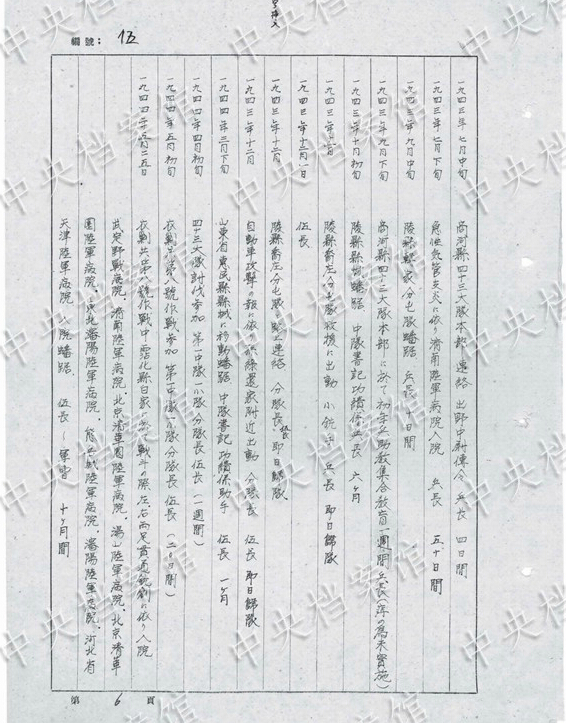 編號: 伍
一九四三年七月中旬 商河縣四十三大隊本部ニ連絡 出野中尉傳令 兵長 四日間
一九四三年七月下旬 急性気管支炎ニ依リ濟南陸軍病院入院 兵長 五十日間
一九四三年九月中旬 陵縣 家分屯隊蟠踞 兵長 十日間
一九四三年九月下旬 商河縣四十三大隊本部ニ於テ初年兵助教集合教育一週間 兵長(雨ノ為未実施)
一九四三年十月初旬 陵縣縣城蟠踞 中隊書記功績係兵長 六ヶ月
一九四三年 陵縣喬庄分屯隊救援ニ出動 小銃手 兵長 即日歸隊
一九四三年十二月一日 伍長
一九四三年十二月 陵縣喬庄分屯隊ニ 連絡 分隊長 伍長 即日歸隊
一九四三年十二月 自動車攻撃ノ報ニ依リ 邊家附近出動 分隊長 伍長 即日歸隊
一九四四年三月下旬 山東省 縣縣城ニ移動蟠踞 中隊書記功績係助手 伍長 一ヶ月
一九四四年四月初旬 四十三大隊討伐参加 第一中隊一小隊分隊長 伍長(一週間)
一九四四年五月初旬 衣 第八號作戰参加 第一中隊 小隊分隊長 伍長(二十日間)
一九四四年五月二五日 衣 第八號作戰中 霑化縣白家ニ於テ戰斗ノ際左右両足貫通銃創ニ依リ入院
武定野戰病院.濟南陸軍病院.北京清華園陸軍病院.湯山陸軍病院.北京清華
園陸軍病院.東北瀋陽陸軍病院. 城陸軍病院.瀋陽陸軍病院.河北省
天津陸軍病院 入院蟠踞 伍長~軍曹 十ヶ月間
第 6 頁
中央档案馆